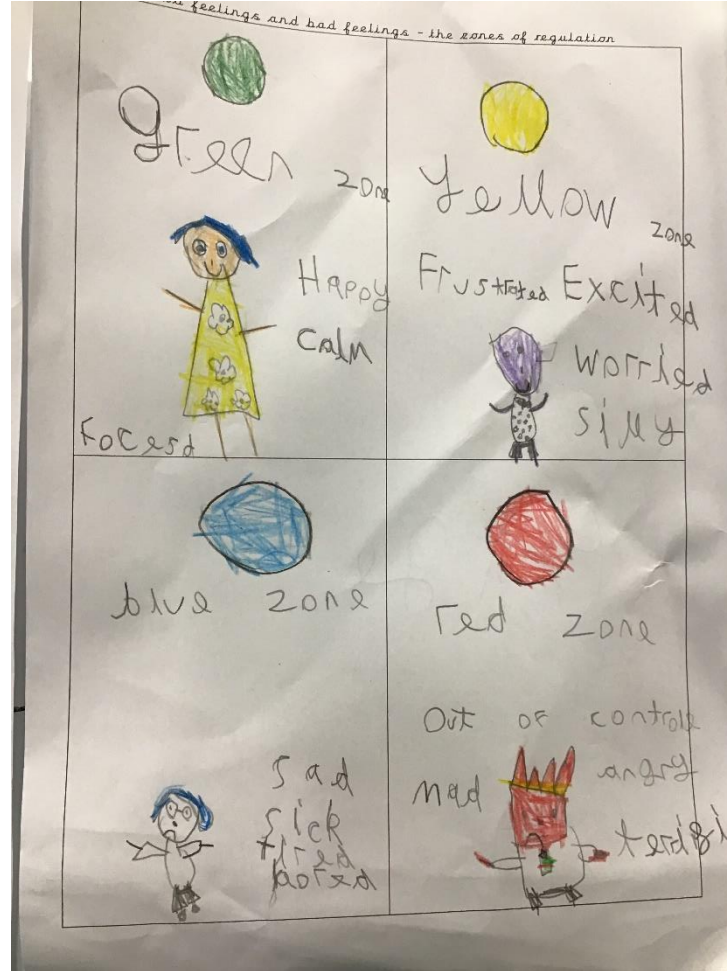 feelings and bad feelings - the zones of regulation
green
zone
Happy
calm
Focesd
yellow
zone
Frustrated Excited
worried
silly
blue zone
sad
sick
tired
bored
red zone
Out of controle
mad angry